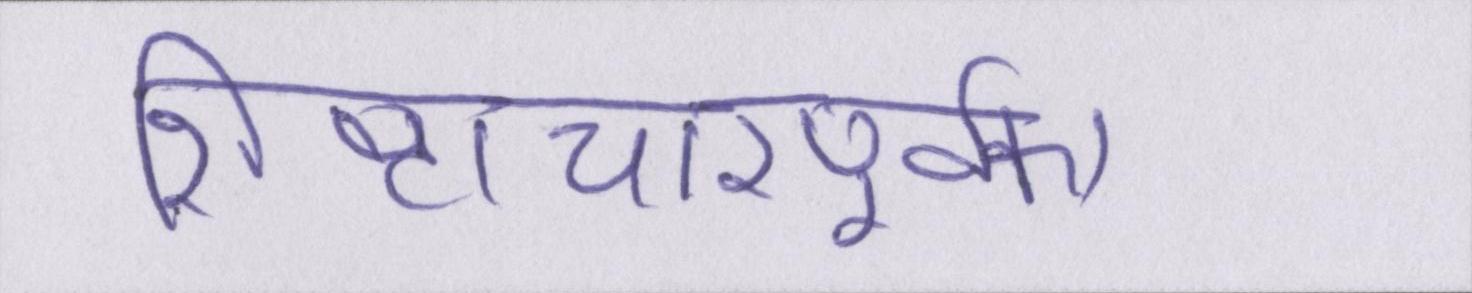 शिष्टाचारपूर्वक